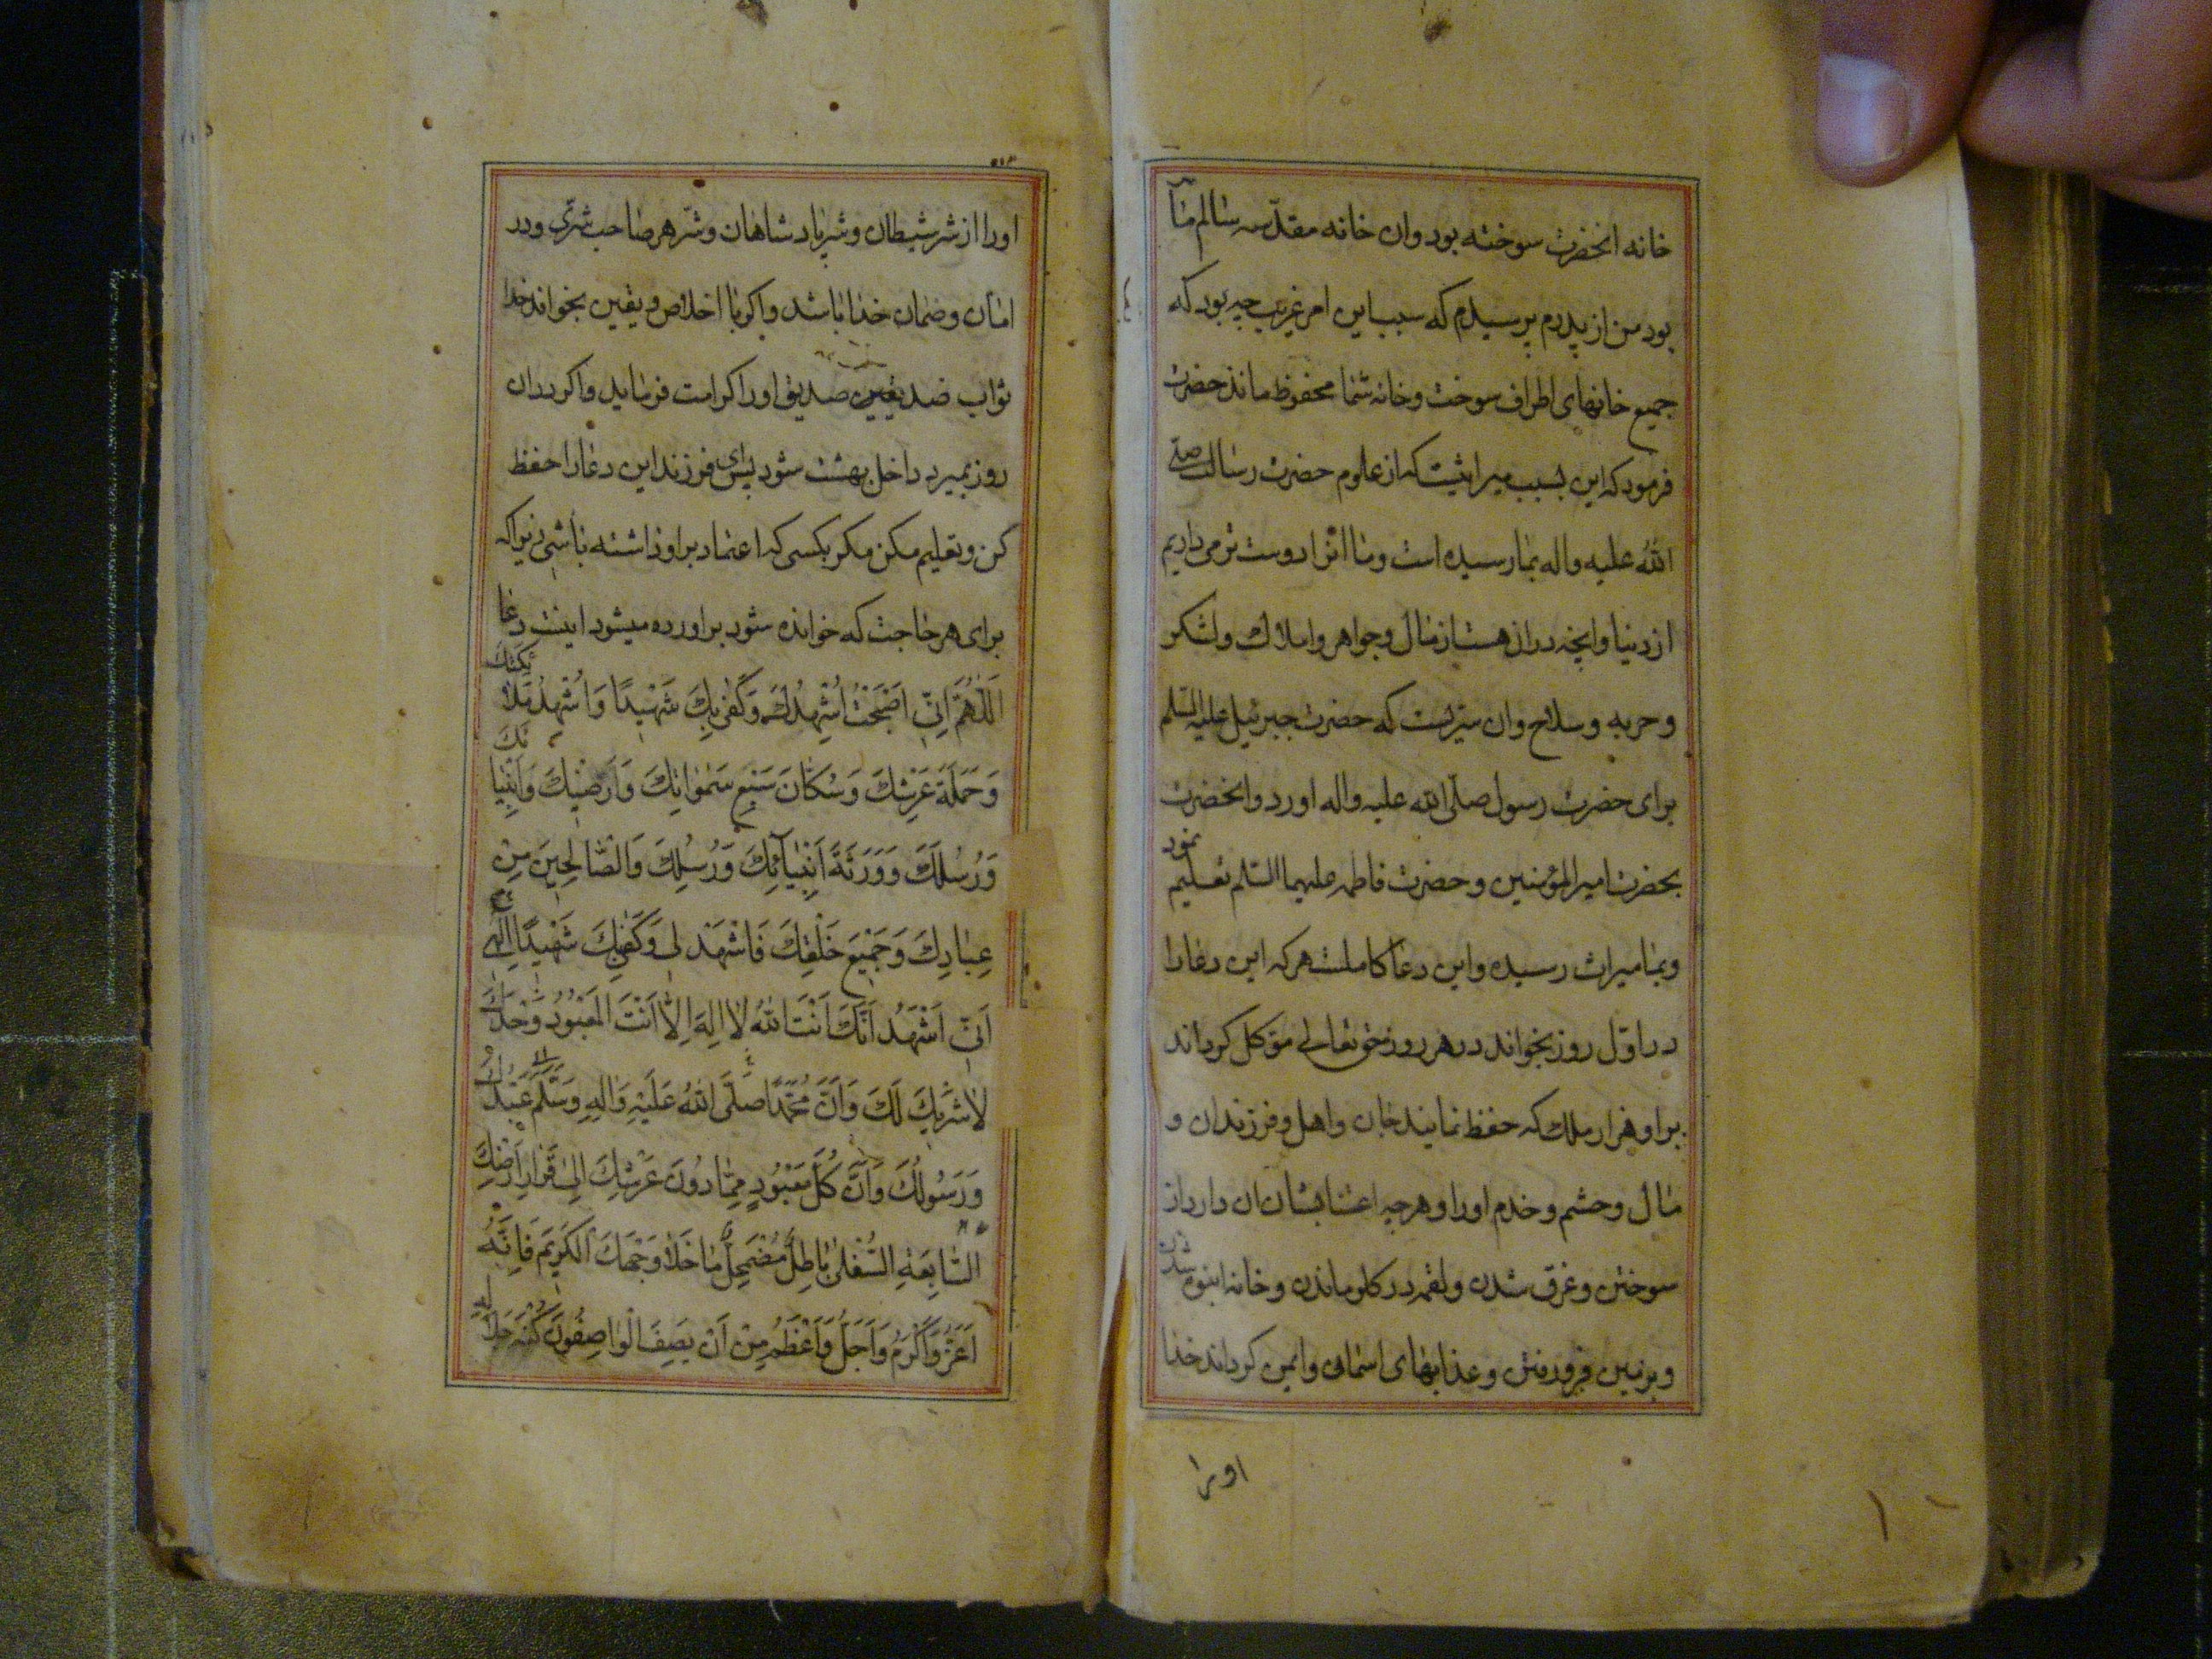 خانه انحضرت سوخته بود وان خانه مقدسه سالم مانده
بود من از پدرم پرسیدم که سبب این امر غریب چه بود که
جمیع خانهای اطراف سوخت و خانه شما محفوظ ماند حضرت
فرمود که این بسبب میراثیست که از علوم حضرت رسالت صلی
الله علیه واله بما رسیده است وما انرا دوست تر می داریم
از دنیا وانچه دران هست از مال و جواهر و املاک و لشکر
و حربه و سلاح وان سریست که حضرت جبرئیل علیه السلام
برای حضرت رسول صلّی الله علیه واله اورد وانحضرت
بحضرت امیرالمؤمنین و حضرت فاطمه علیهما السّلم تعلیم نمود
وبما میراث رسیده واین دعا کاملست هرکه این دعا را
در اوّل روز بخواند در هر روز حقتعالی موکل کرداند
براو هزار ملک که حفظ نمایند جان واهل و فرزندان و
مال و حشم و خدم اورا وهرچه اعتنا بشان ان دارد از
سوختن و غرق شدن ولقمه در کلو ماندن و خانه
وبزمین فرورفتن و عذابهای اسمانی وایمن کرداند خدا
اورا
اورا از شر شیطان و شر پادشاهان و شرّ هر صاحب شرّی و در
امان وضمان خدا باشد واکر با اخلاص ویقین بخواند خدا
ثواب صدیقین صدیق اورا کرامت فرماید واکر دران
روز بمیرد داخل بهشت شود پس ای فرزند این دعا را حفظ
کن وتعلیم مکن مکر بکسی که اعتماد براو داشته باشی زیرا که
برای هر حاجت که خوانده شود براورده میشود اینست دعا
اَللّٰهُمَّ اِنّی اَصْبَحْتُ اُشْهِدُكَ وَكَفٰی بِكَ شَهیدًا وَاُشْهِدُ مَلاٰئِكَتَكَ
وَحَمَلَةَ عَرْشِكَ وَسُكّانَ سَبْعِ سَمٰوٰاتِكَ وَاَرَضیكَ وَاَنْبِیٰائَكَ
وَرُسُلَكَ وَوَرَثَةَ اَنْبِیآئِكَ وَرُسُلِكَ وَالصّٰالِحینَ مِنْ
عِبٰادِكَ وَجَمیعَ خَلْقِكَ فَاشْهَدْ لی وَكَفٰی بِكَ شَهیدًا اِلٰهی
اَنّی اَشْهَدُ اَنَّكَ اَنْتَ اللهُ لاٰ اِلهَ اِلاّٰ اَنْتَ الْمَعْبُودُ وَحْدَكَ
لاٰ شَریكَ لَكَ وَاَنَّ مُحَمَّدًا صَلَّی اللهُ عَلَیْهِ وَالِهِ وَسَلَّمَ عَبْدُكَ
وَرَسُولُكَ وَاَنَّ كُلَّ مَعْبُودٍ مِمّٰا دُونَ عَرْشِكَ اِلیٰ قَرٰارِ اَرْضِكَ
السّٰابِعَةِ السُّفْلیٰ بٰاطِلٌ مُضْمَحِلٌّ مٰا خَلاٰ وَجْهَكَ الْكَریمَ فَاِنَّهُ
اَعَزُّ وَاَكْرَمُ وَاَجَلُّ وَاَعْظَمُ مِنْ اَنْ یَصِفَ الْوٰاصِفُونَ كُنْهَ جَلاٰلِهِ